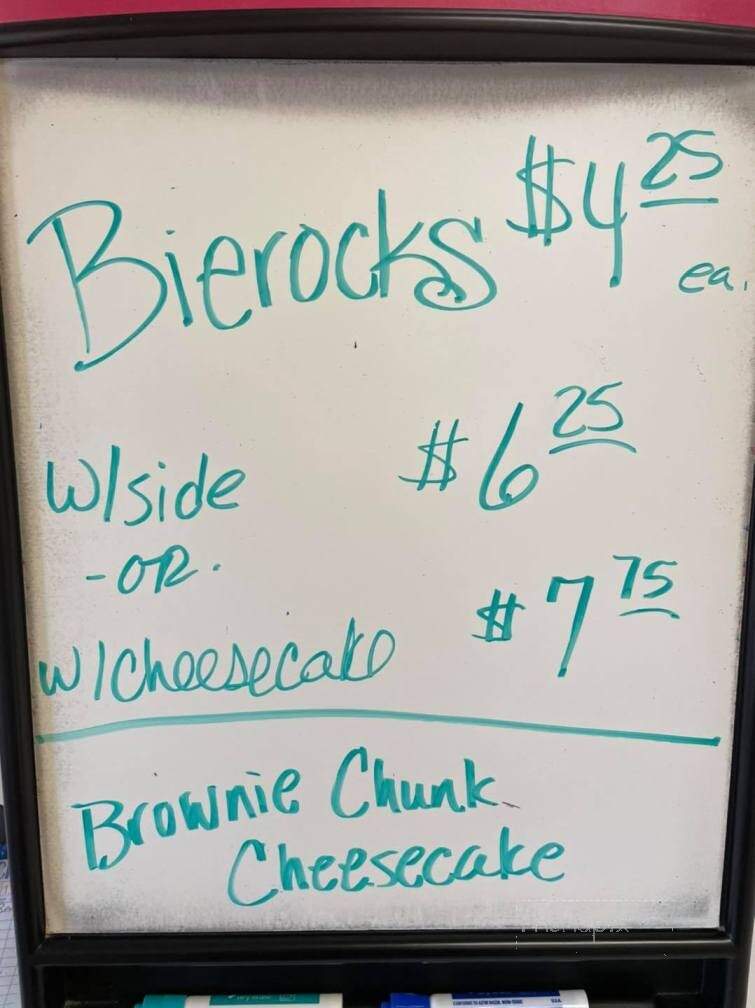 Bierocks $4.25 ea.
w/side $6.25
-OR-
w/cheesecake $7.75
Brownie Chunk
Cheesecake